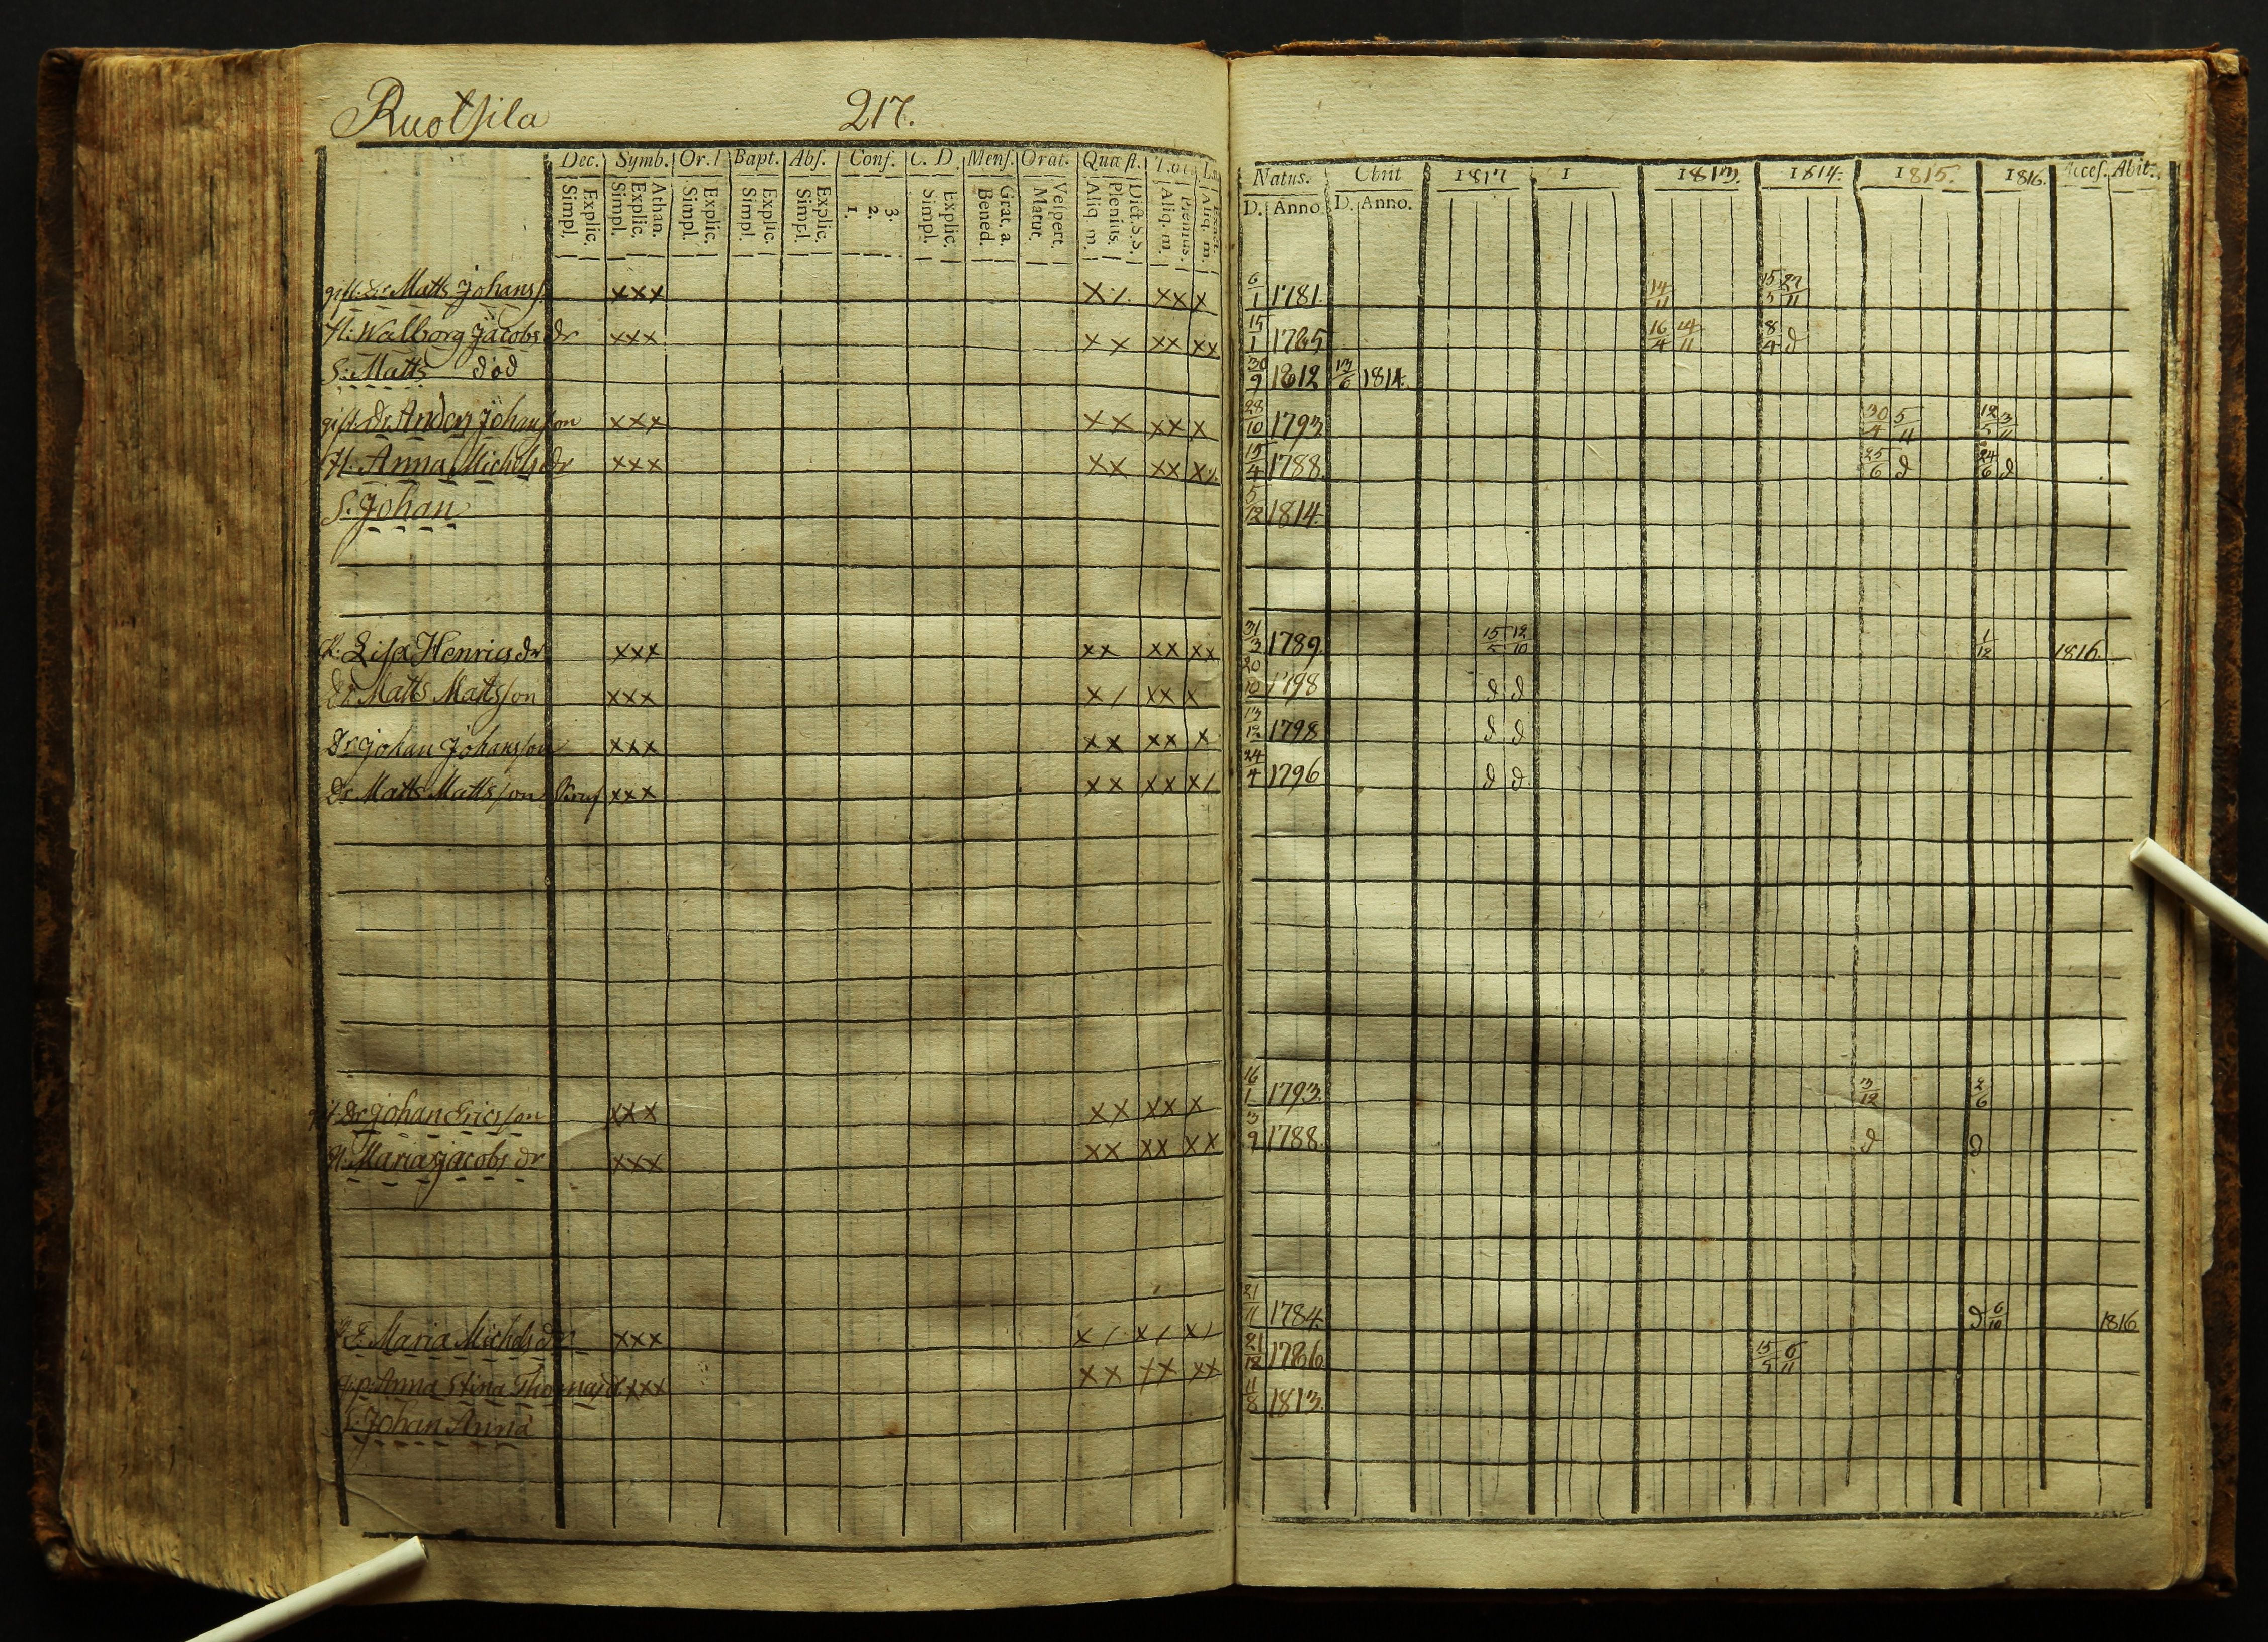 Ruotsila 217.
Dec. Symb. Or. D Bapt. Abs. Conf. C. D. Mens. Orat. Quæst. Natus. Obiit 1817 1 1813. 1814. 1815. 1816. Acces. Abit.
Explic. Simpl. Athan. Explic. Simpl. Explic. Simpl. Explic. Simpl. Explic. Simpl. 3. 2. 1. Explic. Simpl. Grat. a. Bened. Vespert. Matut. Dict. S. S. Plenius. Aliq. m. Plenius. Aliq. m. Aliq. m. D. Anno D. Anno.
gift. Dr Matts Johans s. xxx x/. xx x 6/1 1781. 14/11 15/5 27/11
H: Walborg Jacobs dr xxx x x xx xx 15/1 1785 16/4 14/11 8/4 d
S: Matts död 30/9 1812 13/6 1814.
gift. Dr Anders Johansson xxx xx xx x 28/10 1793 30/4 5/11 12/5 3/11
H. Anna Michels dr xxx xx xx x/. 15/4 1788. 25/6 d 24/6 d
S. Johan 5/12 1814.
Lisa Henrics dr xxx xx xx xx 31/3 1789. 15/5 12/10 1/12 1816
Dr Matts Matsson xxx x / xx x 20/10 1798 d d
Dr Johan Johansson xxx xx xx x 13/12 1798 d d
Dr Matts Mattsson xxx xx xx x/ 24/4 1796 d d
Dr Johan Ericsson xxx xx xx x 16/1 1793. 3/12 2/6
H: Maria Jacobs dr xxx xx xx xx 3/9 1788. d d
E. Maria Michels dr xxx x / x / x / 21/11 1784. d 6/10 1816
Anna Stina Thomas dr xxx xx xx xx 21/12 1786 15/5 6/11
S. Johan Anna 11/8 1813.